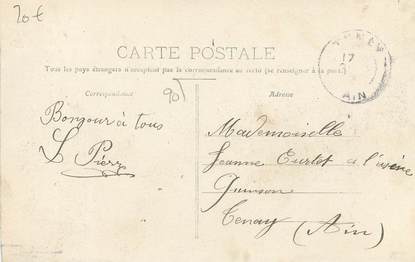 20€
CARTE POSTALE
Tous les pays étrangers n'acceptent pas la correspondance au recto (se renseigner à la poste).
Correspondance
Adresse
90
17
AIN
Bongour à tous
L Pierz
Mademoiselle
Jeanne Curlet à l'usine
Quinson
Tenay (Ain)